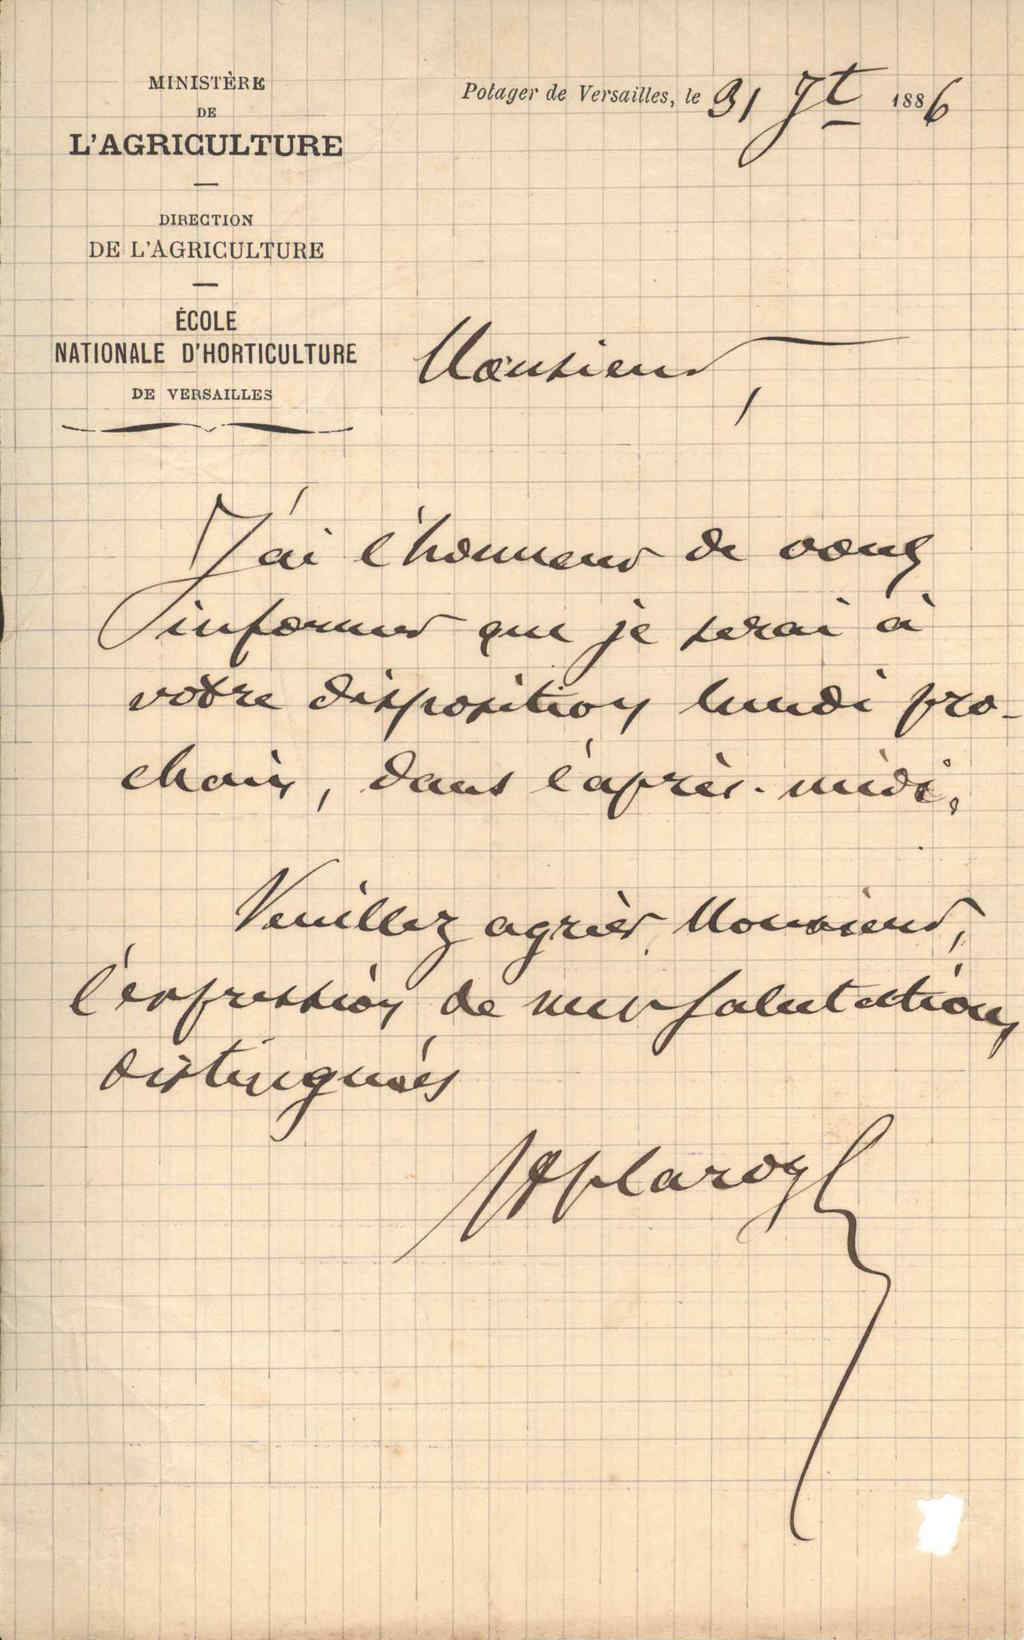 MINISTÈRE
DE
L'AGRICULTURE
DIRECTION
DE L'AGRICULTURE
ÉCOLE
NATIONALE D'HORTICULTURE
DE VERSAILLES
Potager de Versailles, le 31 Jt 1886
Monsieur,
J'ai l'honneur de vous
informer que je serai à
votre disposition lundi pro-
chain, dans l'après-midi.
Veuillez agréer, Monsieur,
l'expression de mes salutations
distinguées